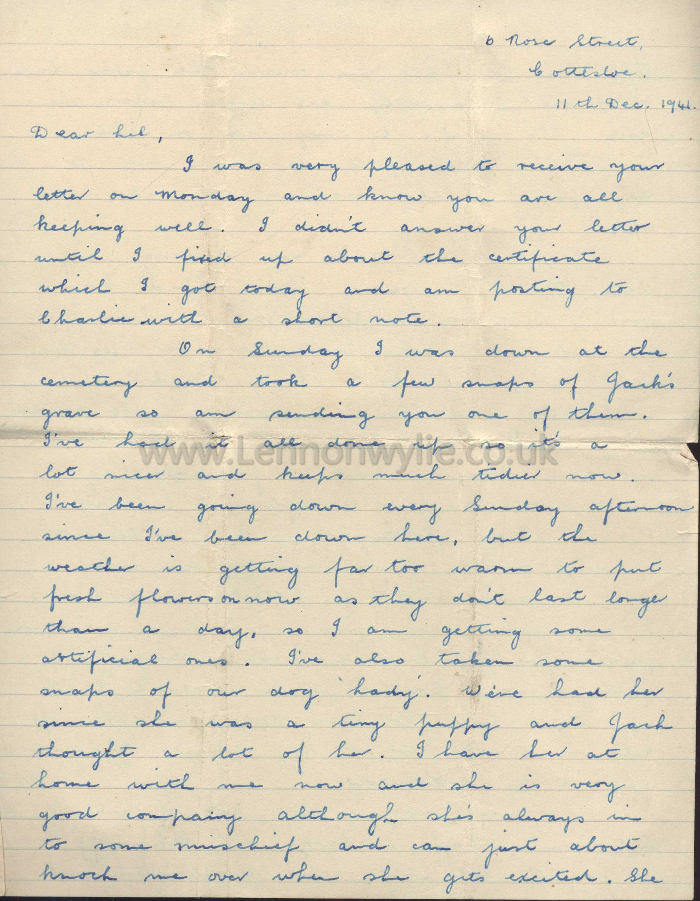 6 Rose Street,
Cottesloe.
11th Dec. 1941.
Dear Lil,
I was very pleased to receive your
letter on Monday and know you are all
keeping well. I didn't answer your letter
until I fixed up about the certificate
which I got today and am posting to
Charlie with a short note.
On Sunday I was down at the
cemetery and took a few snaps of Jack's
grave so am sending you one of them.
I've had it all done up so it's a
www.Lennonwylie.co.uk
lot nicer and keeps much tidier now.
I've been going down every Sunday afternoon
since I've been down here, but the
weather is getting far too warm to put
fresh flowers on now as they don't last longer
than a day, so I am getting some
artificial ones. I've also taken some
snaps of our dog 'Lady'. We've had her
since she was a tiny puppy and Jack
thought a lot of her. I have her at
home with me now and she is very
good company although she's always in
to some mischief and can just about
knock me over when she gets excited. She